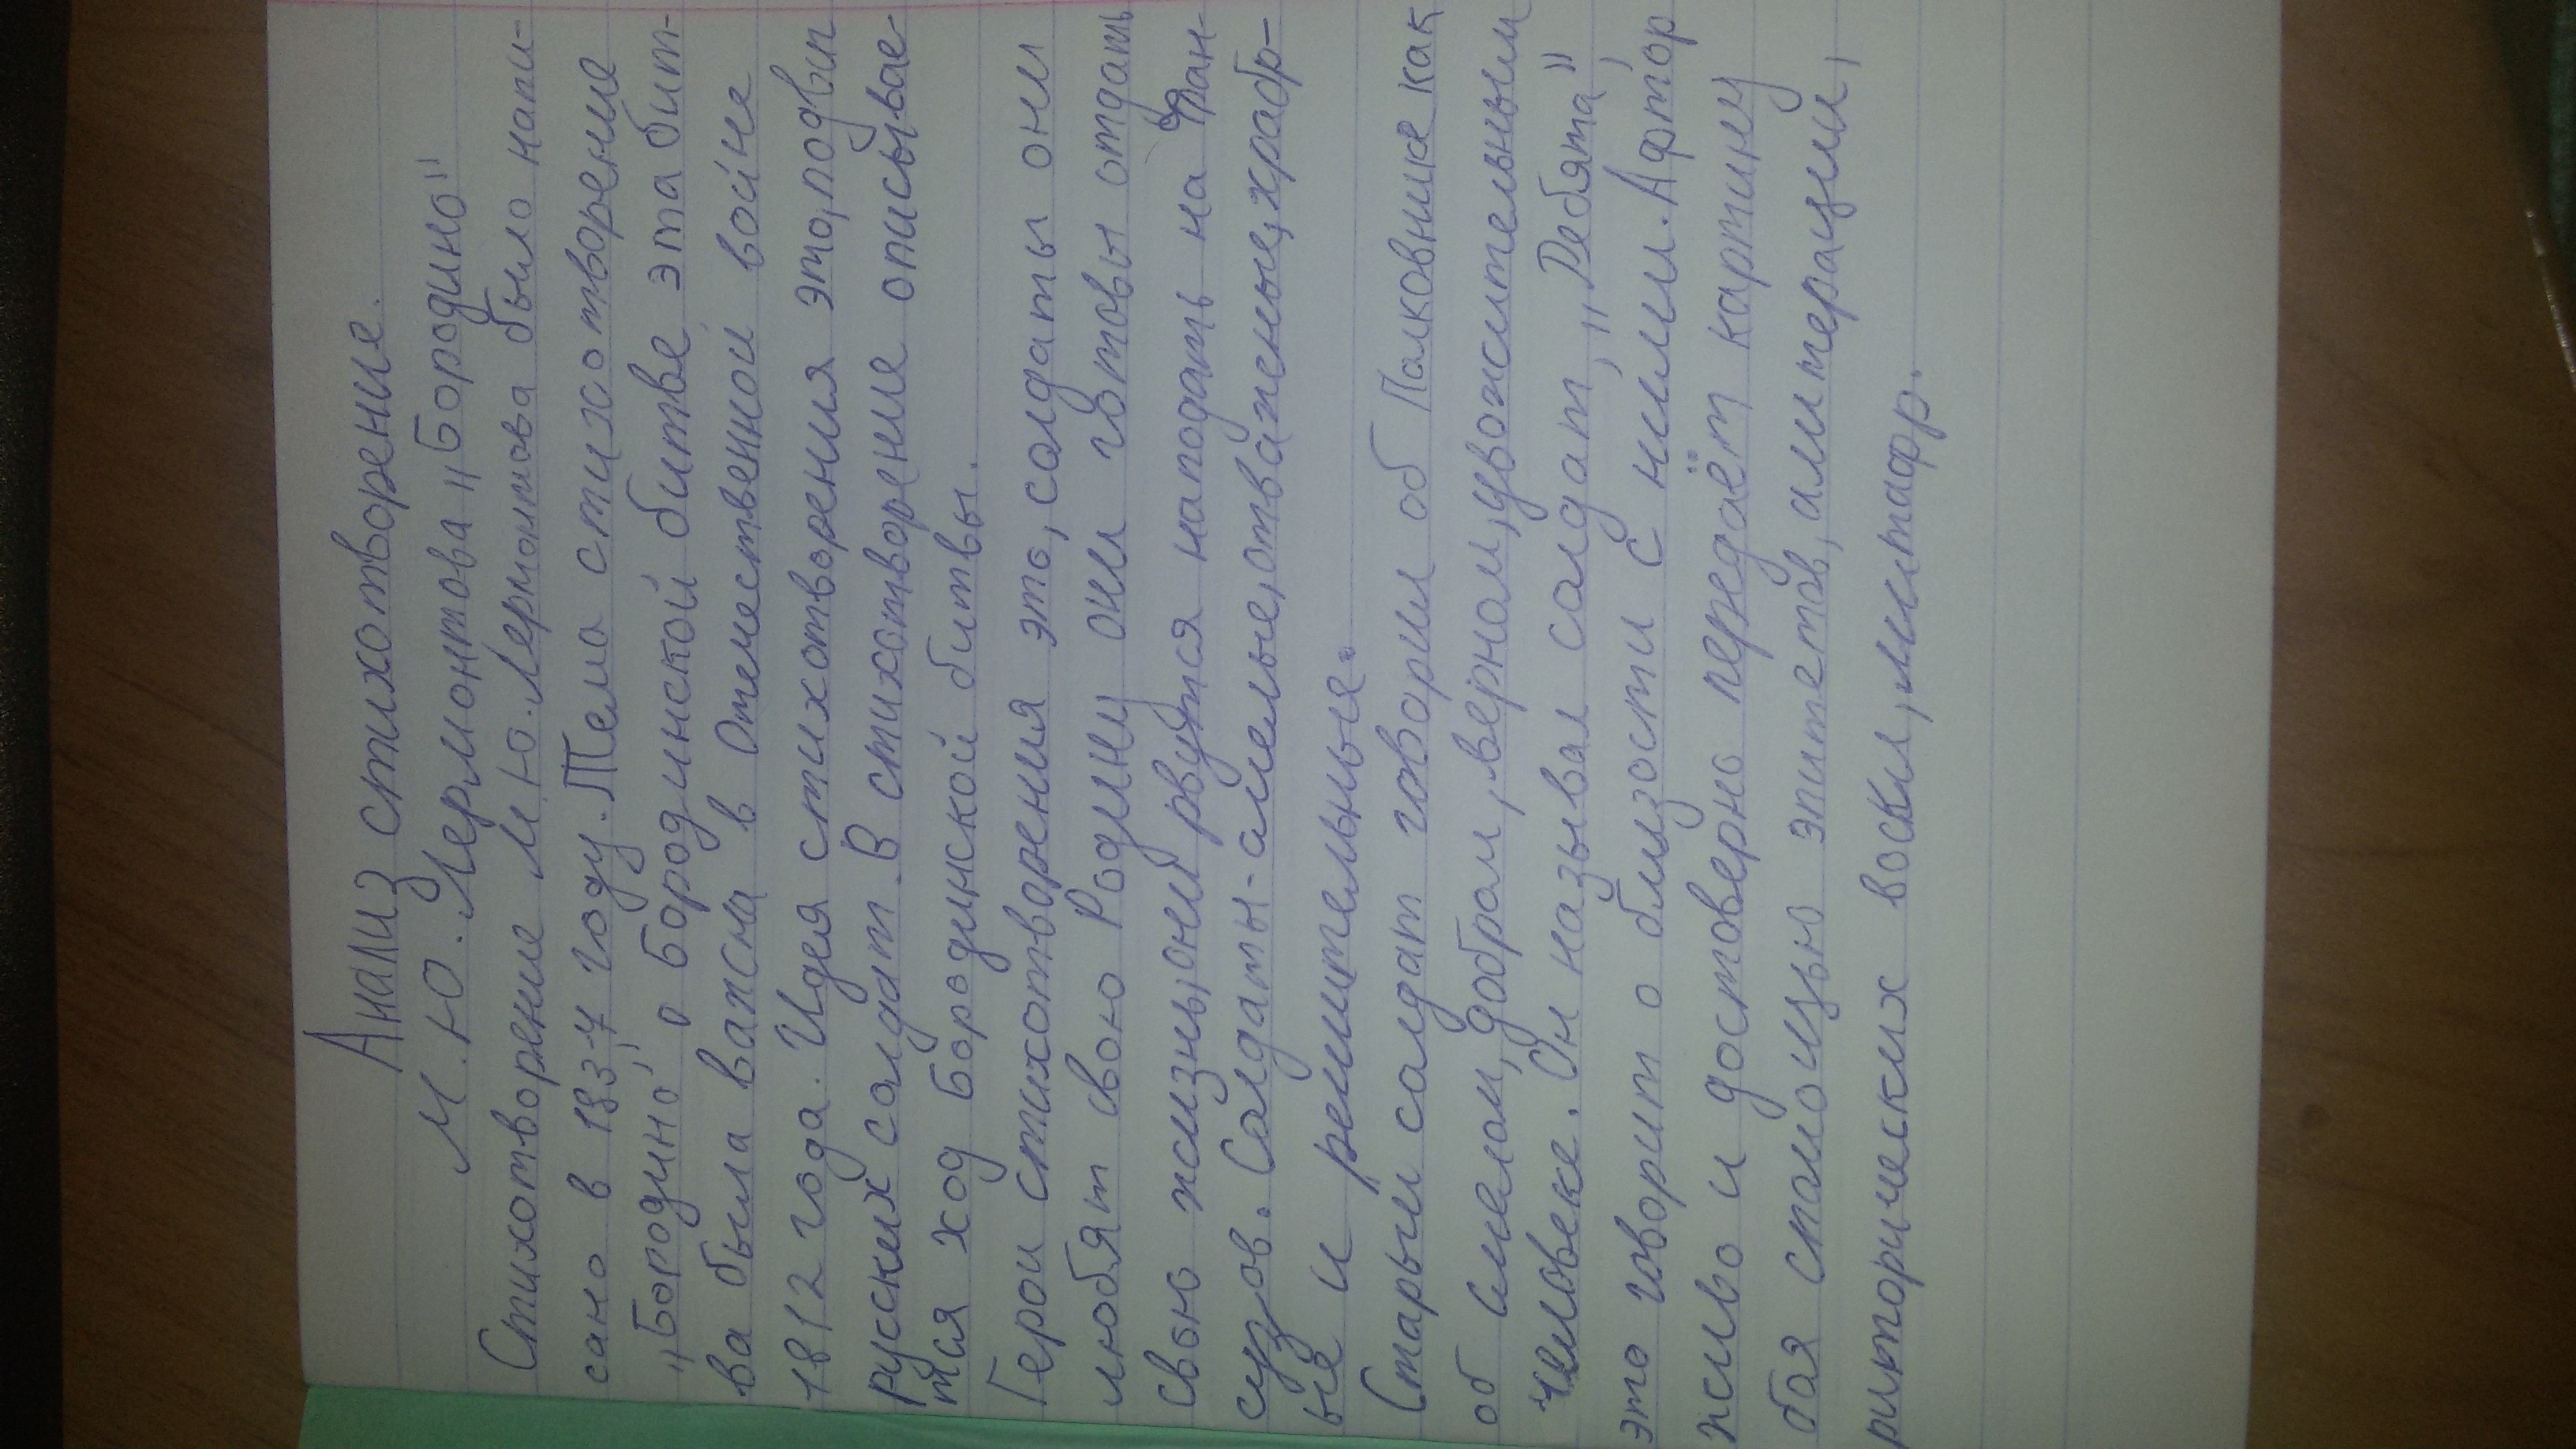 Анализ стихотворение.
М.Ю. Лермонтова „Бородино"
Стихотворение М.Ю. Лермонтова было напи-
сано в 1837 году. Тема стихотворение
„Бородино" о Бородинской битве эта бит-
ва была важна в Отечественной войне
1812 года. Идея стихотворения это, подвиг
русских солдат. В стихотворение описывае-
тся ход Бородинской битвы.
Герои стихотворения это, солдаты они
любят свою Родину они готовы отдать
свою жизнь, они рвутся нападать на фран-
сузов. Солдаты-смелые, отважные, храбр-
ые и решительные.
Старый солдат говорил об Полковнике как
об смелом, добром, верном, уважительным
человеке. Он называл солдат, „Ребята",
это говорит о близости с ними. Афтор
живо и достоверно передаёт картину
боя спомощью эпитетов, алитерации,
риторических воскл, митафр.